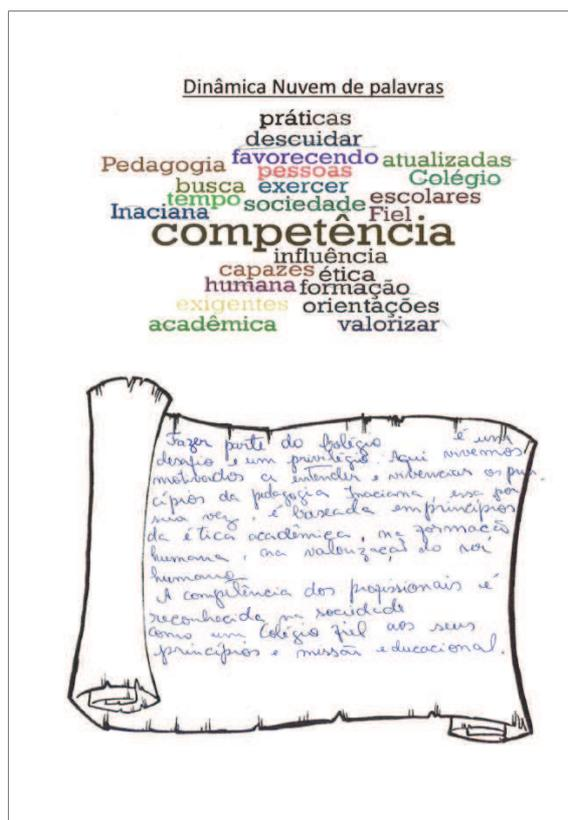 Dinâmica Nuvem de palavras
práticas
descuidar
Pedagogia favorecendo atualizadas
pessoas Colégio
busca exercer
tempo sociedade escolares
Inaciana Fiel
competência
influência
capazes ética
humana formação
exigentes orientações
acadêmica valorizar
Fazer parte do Colégio é um
desafio e um privilégio. Aqui vivemos
motivados a entender e vivenciar os prin-
cípios da pedagogia Inaciana, essa por
sua vez, é baseada em princípios
da ética acadêmica, na formação
humana, na valorização do
humano
A competência dos profissionais é
reconhecida na sociedade
como um Colégio fiel aos seus
princípios e missão educacional.